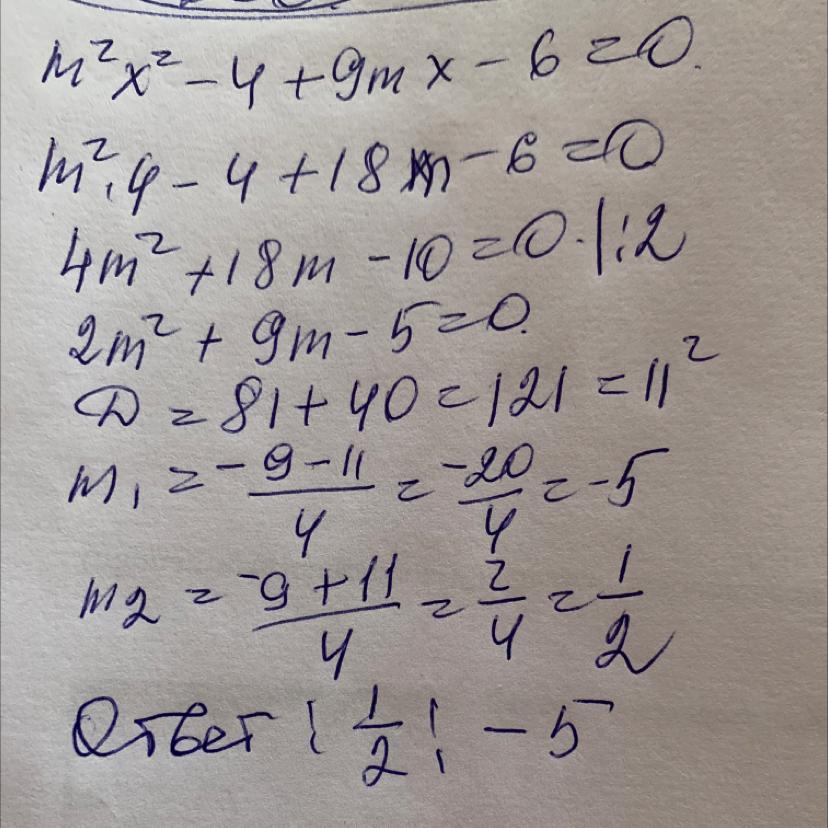 m²x² - 4 + 9mx - 6 = 0.
m²·4 - 4 + 18m - 6 = 0
4m² + 18m - 10 = 0. |:2
2m² + 9m - 5 = 0.
D = 81 + 40 = 121 = 11²
m₁ = (-9-11)/4 = -20/4 = -5
m2 = (-9+11)/4 = 2/4 = 1/2
Ответ: 1/2; -5